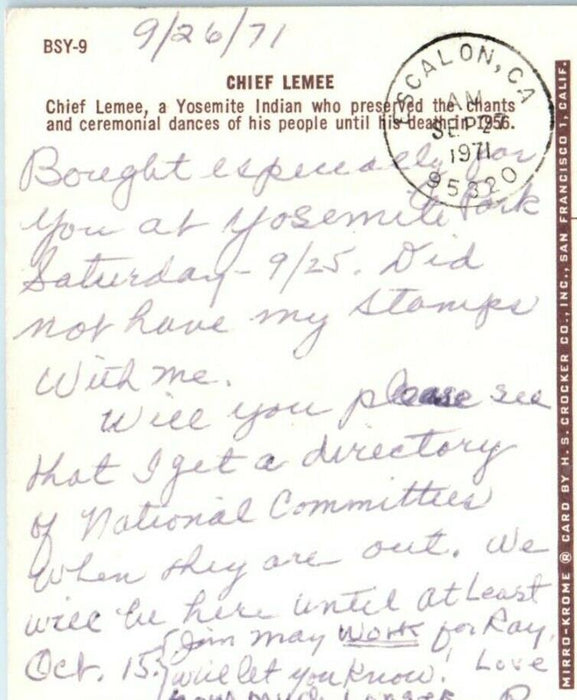 9/26/71
BSY-9
CHIEF LEMEE
Chief Lemee, a Yosemite Indian who preserved the chants
and ceremonial dances of his people until his death in 1956.
ESCALON, CA
AM
SEP
1971
95320
Bought especially for
you at Yosemite Park
Saturday - 9/25. Did
not have my stamps
with me.
Will you please see
that I get a directory
of National Committees
when they are out. We
will be here until at least
Oct. 15.
Jim may work for Ray,
will let you know! Love
MIRRO-KROME ® CARD BY H. S. CROCKER CO., INC., SAN FRANCISCO 1, CALIF.